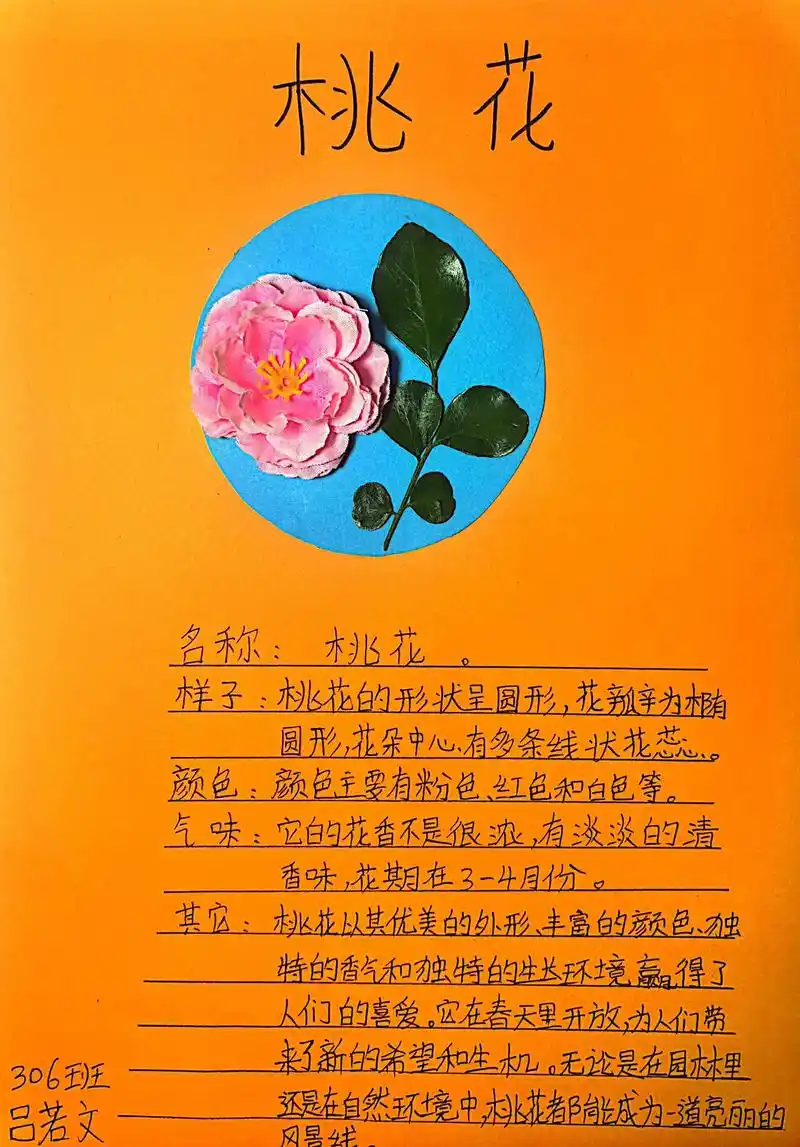 桃花
名称：桃花。
样子：桃花的形状呈圆形，花瓣为椭
圆形，花朵中心、有多条线状花蕊。
颜色：颜色主要有粉色、红色和白色等。
气味：它的花香不是很浓，有淡淡的清
香味，花期在3-4月份。
其它：桃花以其优美的外形、丰富的颜色、独
特的香气和独特的生长环境赢得了
人们的喜爱。它在春天里开放，为人们带
来了新的希望和生机。无论是在园林里
还是在自然环境中，桃花都能成为一道亮丽的
风景线。
306班
吕若文